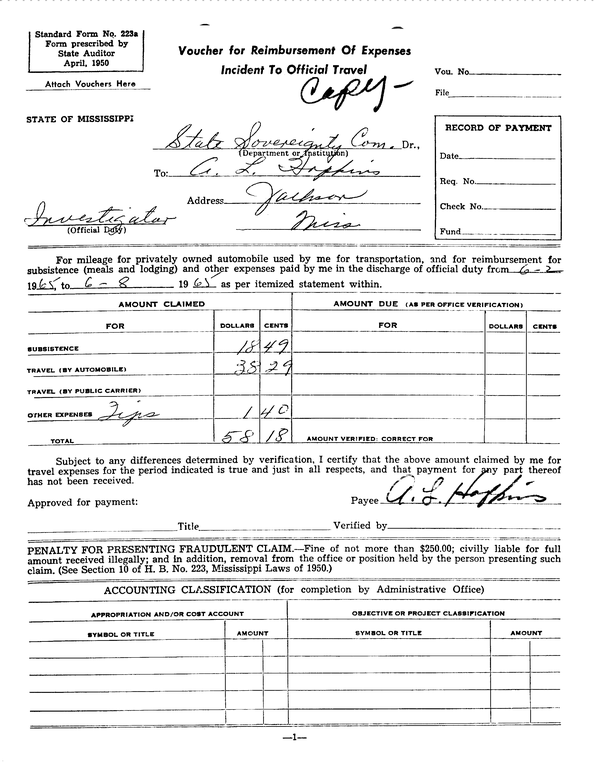 Standard Form No. 223a
Form prescribed by
State Auditor
April, 1950
Attach Vouchers Here
Voucher for Reimbursement Of Expenses
Incident To Official Travel
Copy-
Vou. No.
File
STATE OF MISSISSIPPI
State Sovereignty Com. Dr.,
(Department or Institution)
To: A. L. Hopkins
Address Jackson
Miss
Investigator
(Official Duty)
RECORD OF PAYMENT
Date
Req. No.
Check No.
Fund
For mileage for privately owned automobile used by me for transportation, and for reimbursement for
subsistence (meals and lodging) and other expenses paid by me in the discharge of official duty from 6-2
1965, to 6-8 1965 as per itemized statement within.
AMOUNT CLAIMED AMOUNT DUE (AS PER OFFICE VERIFICATION)
FOR DOLLARS CENTS FOR DOLLARS CENTS
SUBSISTENCE 18 49
TRAVEL (BY AUTOMOBILE) 38 29
TRAVEL (BY PUBLIC CARRIER)
OTHER EXPENSES Tips 1 40
TOTAL 58 18 AMOUNT VERIFIED: CORRECT FOR
Subject to any differences determined by verification, I certify that the above amount claimed by me for
travel expenses for the period indicated is true and just in all respects, and that payment for any part thereof
has not been received.
Payee A. L. Hopkins
Approved for payment:
Title Verified by
PENALTY FOR PRESENTING FRAUDULENT CLAIM.—Fine of not more than $250.00; civilly liable for full
amount received illegally; and in addition, removal from the office or position held by the person presenting such
claim. (See Section 10 of H. B. No. 223, Mississippi Laws of 1950.)
ACCOUNTING CLASSIFICATION (for completion by Administrative Office)
APPROPRIATION AND/OR COST ACCOUNT OBJECTIVE OR PROJECT CLASSIFICATION
SYMBOL OR TITLE AMOUNT SYMBOL OR TITLE AMOUNT
—1—